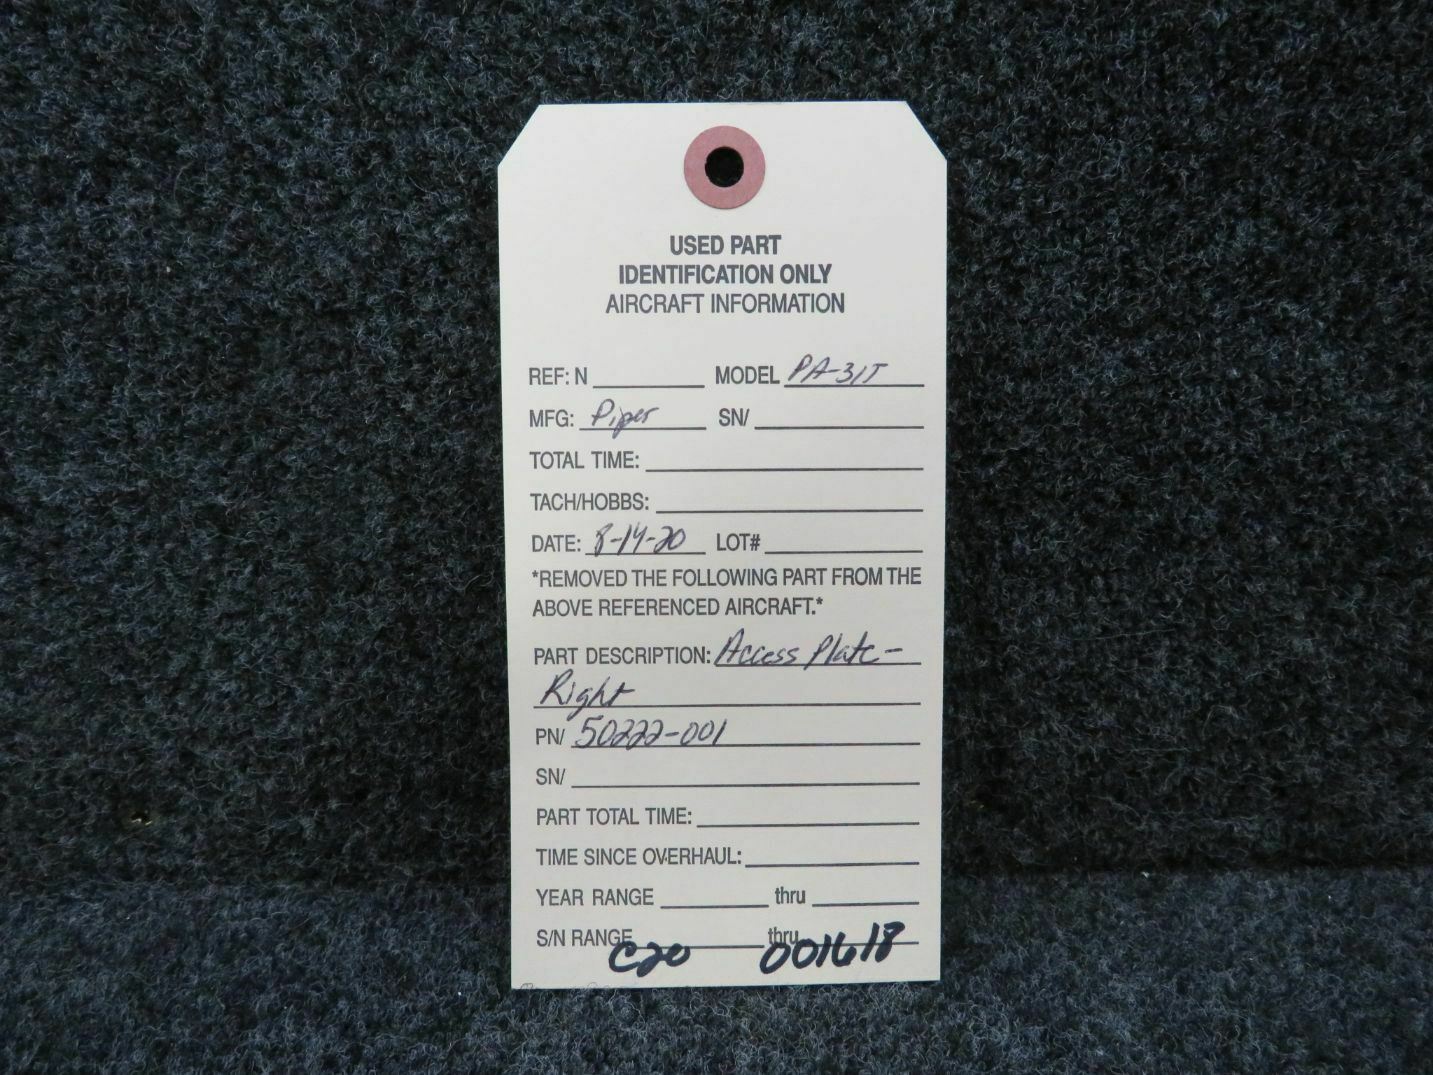 USED PART
IDENTIFICATION ONLY
AIRCRAFT INFORMATION
REF: N MODEL PA-31T
MFG: Piper SN/
TOTAL TIME:
TACH/HOBBS:
DATE: 8-14-20 LOT#
*REMOVED THE FOLLOWING PART FROM THE
ABOVE REFERENCED AIRCRAFT.*
PART DESCRIPTION: Access Plate-
Right
PN/ 50222-001
SN/
PART TOTAL TIME:
TIME SINCE OVERHAUL:
YEAR RANGE thru
S/N RANGE thru
C20 001618